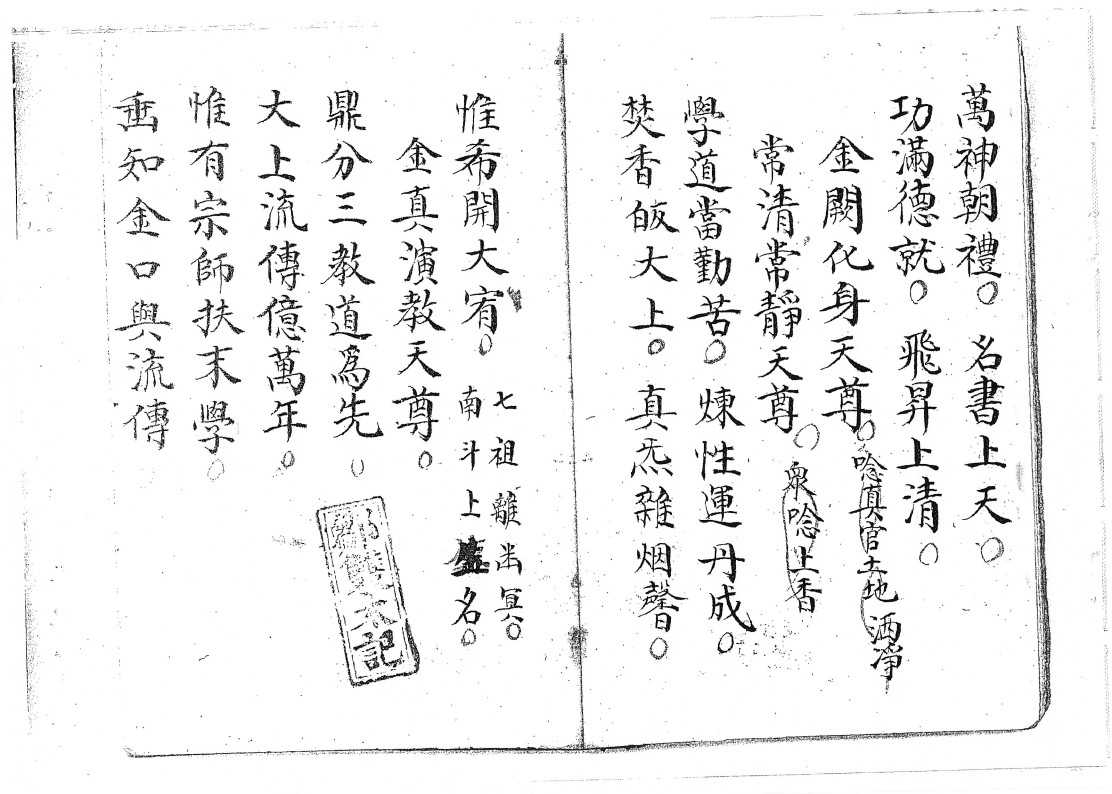 萬神朝禮。名書上天。
功滿德就。飛昇上清。
金闕化身天尊。唸真官土地 洒淨
常清常靜天尊。衆唸上香
學道當勤苦。煉性運丹成。
焚香皈大上。真炁雜烟馨。
惟希開大宥。七祖離幽冥。
南斗上名。
金真演教天尊。
鼎分三教道為先。
大上流傳億萬年。
惟有宗師扶末學。
垂知金口與流傳
記